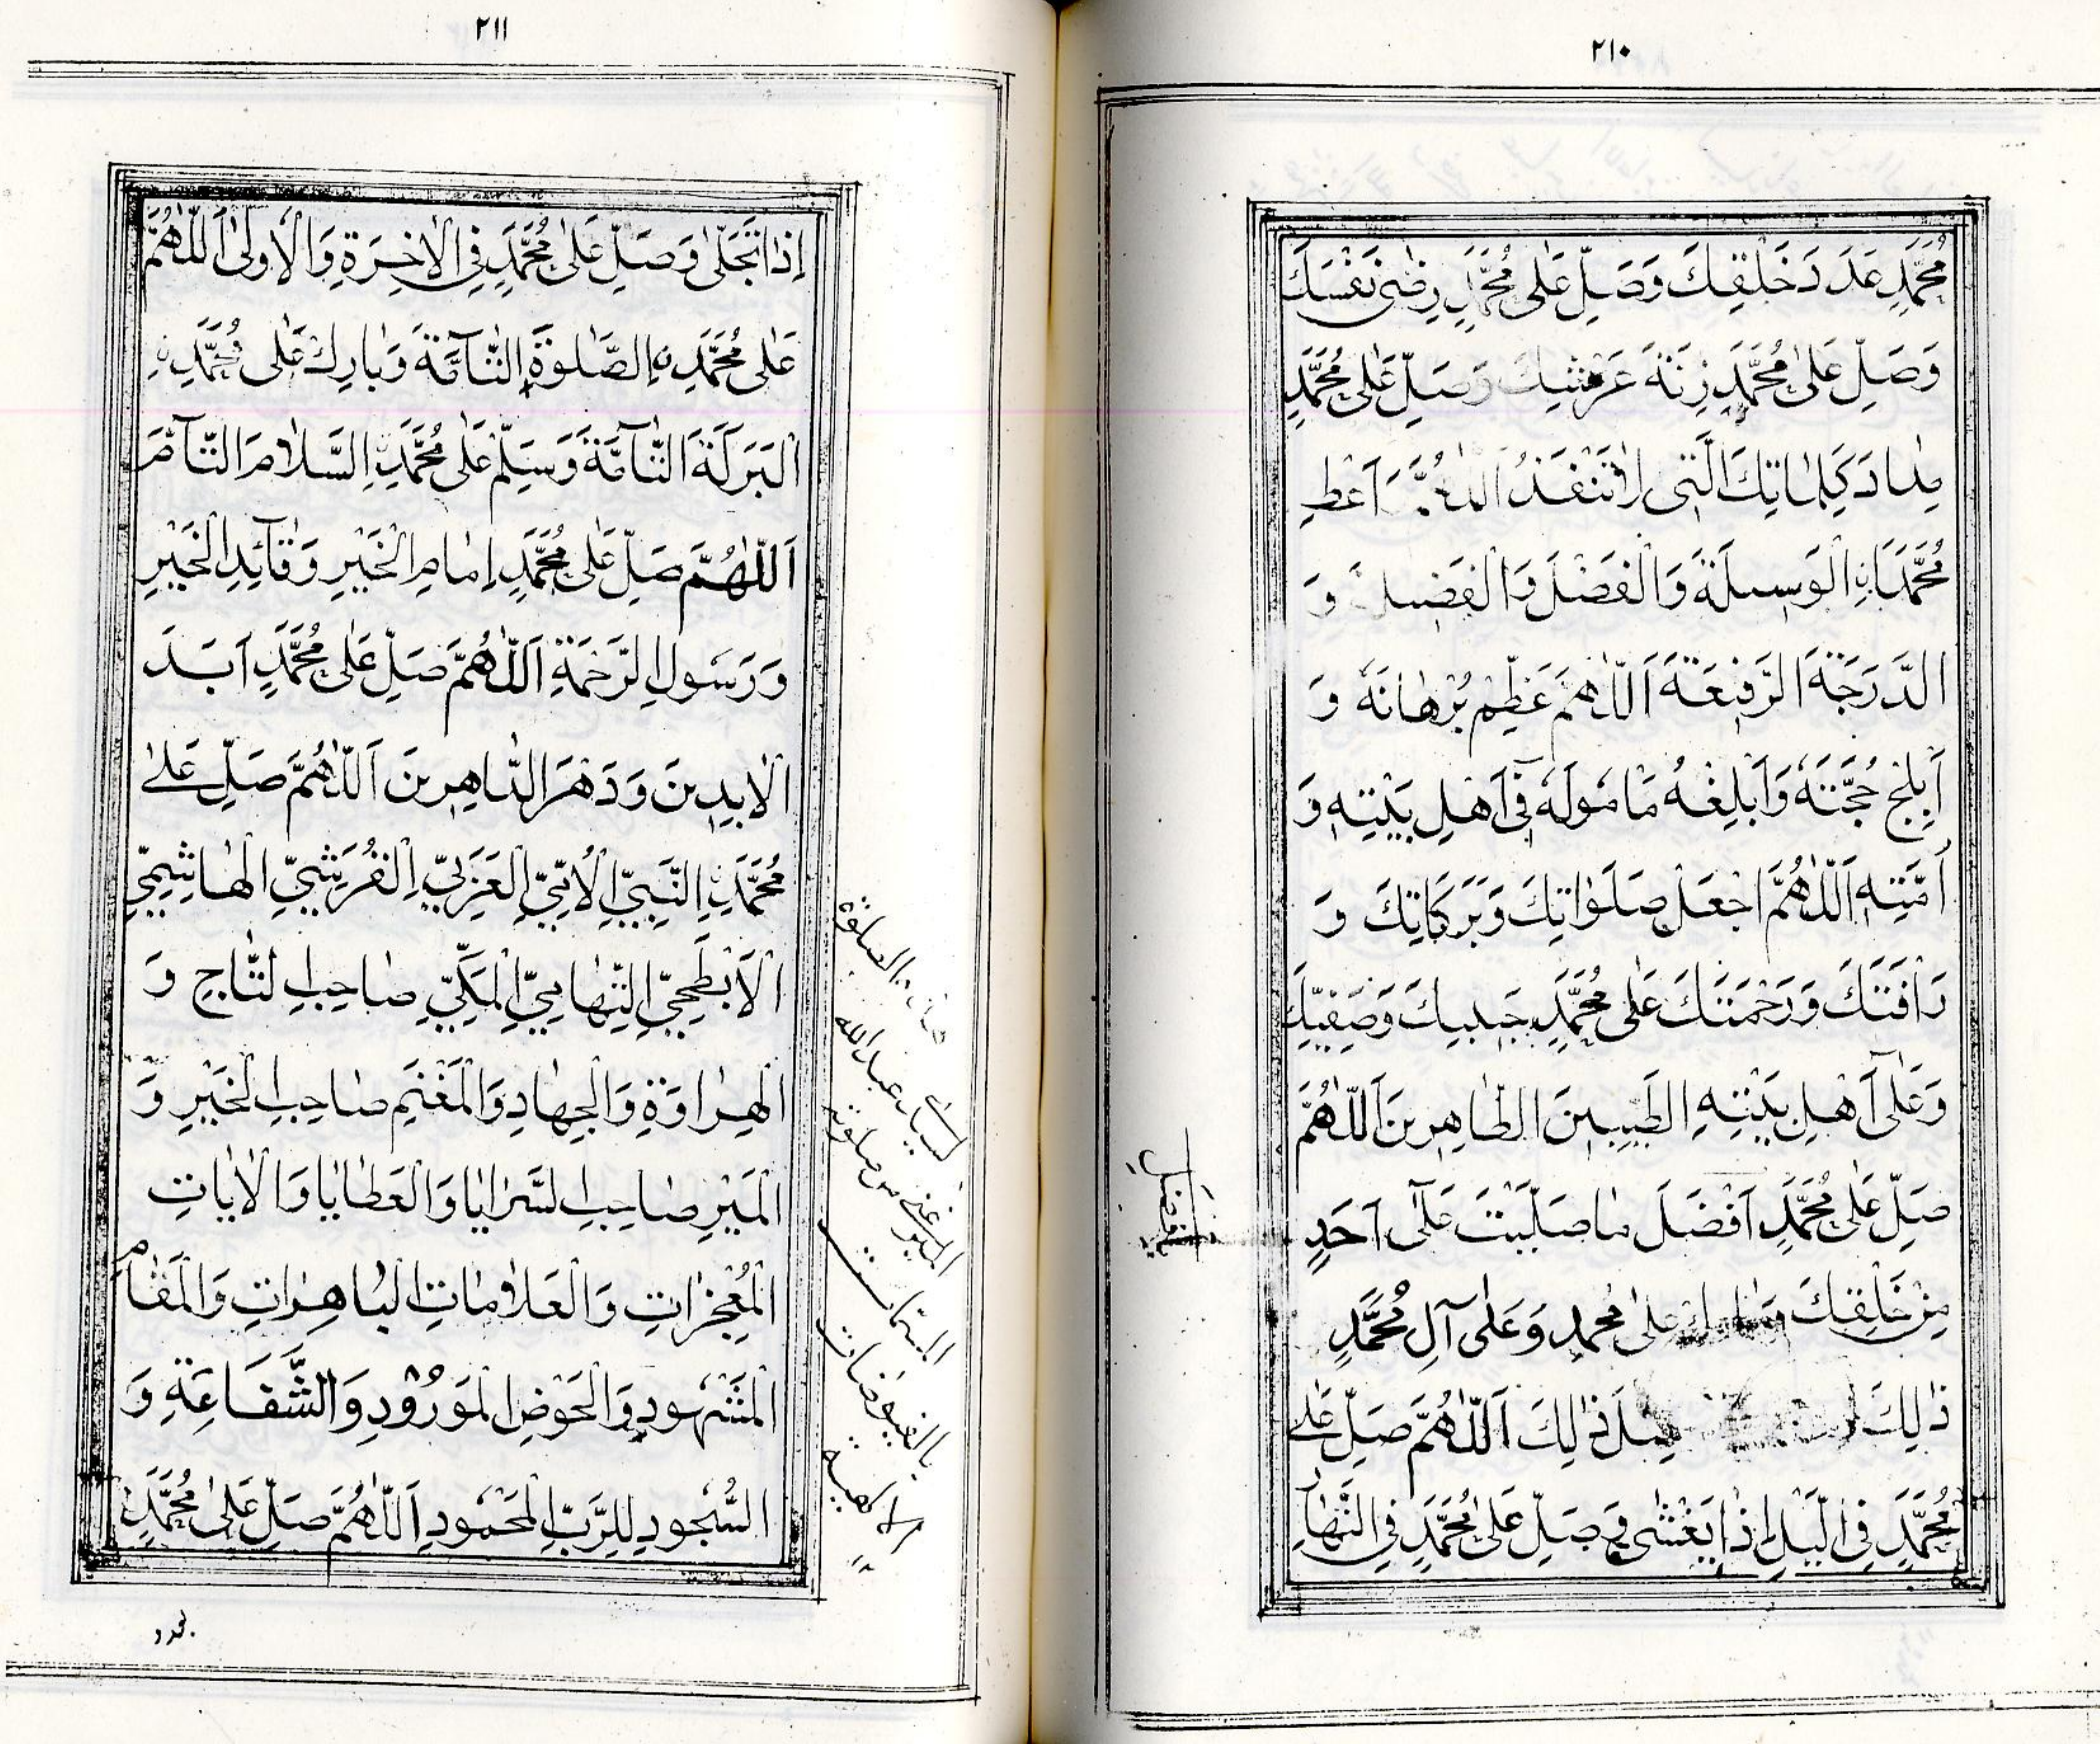 ٢١٠
مُحَمَّدٍ عَدَدَ خَلْقِكَ وَصَلِّ عَلٰى مُحَمَّدٍ رِضٰى نَفْسِكَ
وَصَلِّ عَلٰى مُحَمَّدٍ زِنَةَ عَرْشِكَ وَصَلِّ عَلٰى مُحَمَّدٍ
مِدَادَ كَلِمَاتِكَ الَّتِى لَا تَنْفَدُ اَللّٰهُمَّ اَعْطِ
مُحَمَّدَانِ الْوَسِيلَةَ وَالْفَضْلَ وَالْفَضِيلَةَ وَ
الدَّرَجَةَ الرَّفِيعَةَ اَللّٰهُمَّ عَظِّمْ بُرْهَانَهُ وَ
اَبْلِجْ حُجَّتَهُ وَاَبْلِغْهُ مَامُولَهُ فِى اَهْلِ بَيْتِهِ وَ
اُمَّتِهِ اَللّٰهُمَّ اجْعَلْ صَلَوَاتِكَ وَبَرَكَاتِكَ وَ
رَافَتَكَ وَرَحْمَتَكَ عَلٰى مُحَمَّدٍ حَبِيبِكَ وَصَفِيِّكَ
وَعَلٰى اَهْلِ بَيْتِهِ الطَّيِّبِينَ الطَّاهِرِينَ اَللّٰهُمَّ
صَلِّ عَلٰى مُحَمَّدٍ اَفْضَلَ مَا صَلَّيْتَ عَلٰى اَحَدٍ
مِنْ خَلْقِكَ وَبَارِكْ عَلٰى مُحَمَّدٍ وَعَلٰى آلِ مُحَمَّدٍ
ذٰلِكَ مِثْلَ ذٰلِكَ اَللّٰهُمَّ صَلِّ عَلٰى
مُحَمَّدٍ فِى الَّيْلِ اِذَا يَغْشٰى وَصَلِّ عَلٰى مُحَمَّدٍ فِى النَّهَارِ
٢١١
اِذَا تَجَلّٰى وَصَلِّ عَلٰى مُحَمَّدٍ فِى الْاٰخِرَةِ وَالْاُولٰى اَللّٰهُمَّ
عَلٰى مُحَمَّدِنِ الصَّلٰوةَ التَّآمَّةَ وَبَارِكْ عَلٰى مُحَمَّدِنِ
الْبَرَكَةَ التَّآمَّةَ وَسَلِّمْ عَلٰى مُحَمَّدِنِ السَّلَامَ التَّآمَّ
اَللّٰهُمَّ صَلِّ عَلٰى مُحَمَّدٍ اِمَامِ الْخَيْرِ وَقَآئِدِ الْخَيْرِ
وَرَسُولِ الرَّحْمَةِ اَللّٰهُمَّ صَلِّ عَلٰى مُحَمَّدٍ اَبَدَ
الْاٰبِدِينَ وَدَهْرَ الدَّاهِرِينَ اَللّٰهُمَّ صَلِّ عَلٰى
مُحَمَّدِنِ النَّبِيِّ الْاُمِّيِّ الْعَرَبِيِّ الْقُرَشِيِّ الْهَاشِمِيِّ
الْاَبْطَحِيِّ التِّهَامِيِّ الْمَكِّيِّ صَاحِبِ التَّاجِ وَ
الْهِرَاوَةِ وَالْجِهَادِ وَالْمَغْنَمِ صَاحِبِ الْخَيْرِ وَ
الْمَيْرِ صَاحِبِ السَّرَايَا وَالْعَطَايَا وَالْاٰيَاتِ
الْمُعْجِزَاتِ وَالْعَلَامَاتِ الْبَاهِرَاتِ وَالْمَقَامِ
الْمَشْهُودِ وَالْحَوْضِ الْمَوْرُودِ وَالشَّفَاعَةِ وَ
السُّجُودِ لِلرَّبِّ الْمَحْمُودِ اَللّٰهُمَّ صَلِّ عَلٰى مُحَمَّدٍ
الصلوة
عبدالله
الميرغنى من صلوته
المسمات
بالفيوضات
الالهية
١٢